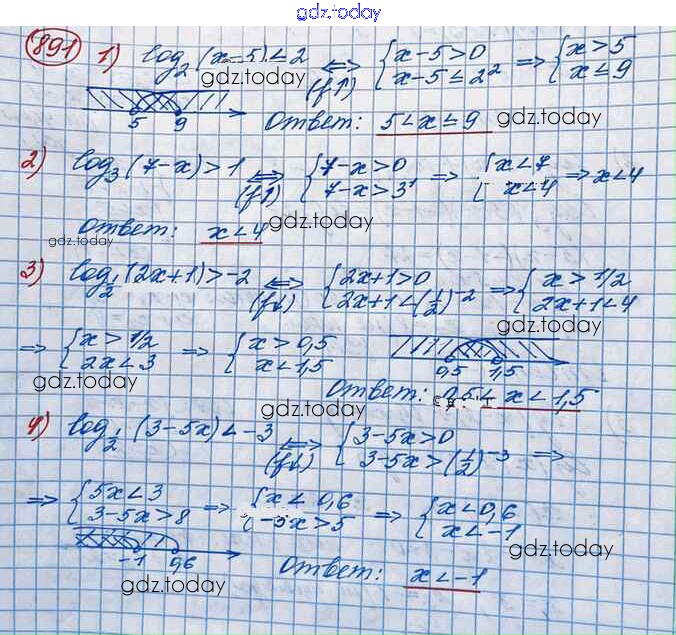 gdz.today
891 1) log₂(x-5) ≤ 2 ⇔ (f↑) { x-5>0 x-5≤2² ⇒ { x>5 x≤9
gdz.today
5 9 Ответ: 5<x≤9 gdz.today
2) log₃(7-x)>1 ⇔ (f↑) { 7-x>0 7-x>3¹ ⇒ { x<7 x<4 ⇒ x<4
Ответ: x<4 gdz.today
gdz.today
3) log½(2x+1)>-2 ⇔ (f↓) { 2x+1>0 2x+1<(½)⁻² ⇒ { x>1/2 2x+1<4
gdz.today
⇒ { x>1/2 2x<3 ⇒ { x>0,5 x<1,5 0,5 1,5
gdz.today Ответ: 0,5< x<1,5
gdz.today
4) log½(3-5x)<-3 ⇔ (f↓) { 3-5x>0 3-5x>(½)⁻³ ⇒
⇒ { 5x<3 3-5x>8 ⇒ { x<0,6 -5x>5 ⇒ { x<0,6 x<-1
-1 0,6 gdz.today
gdz.today Ответ: x<-1